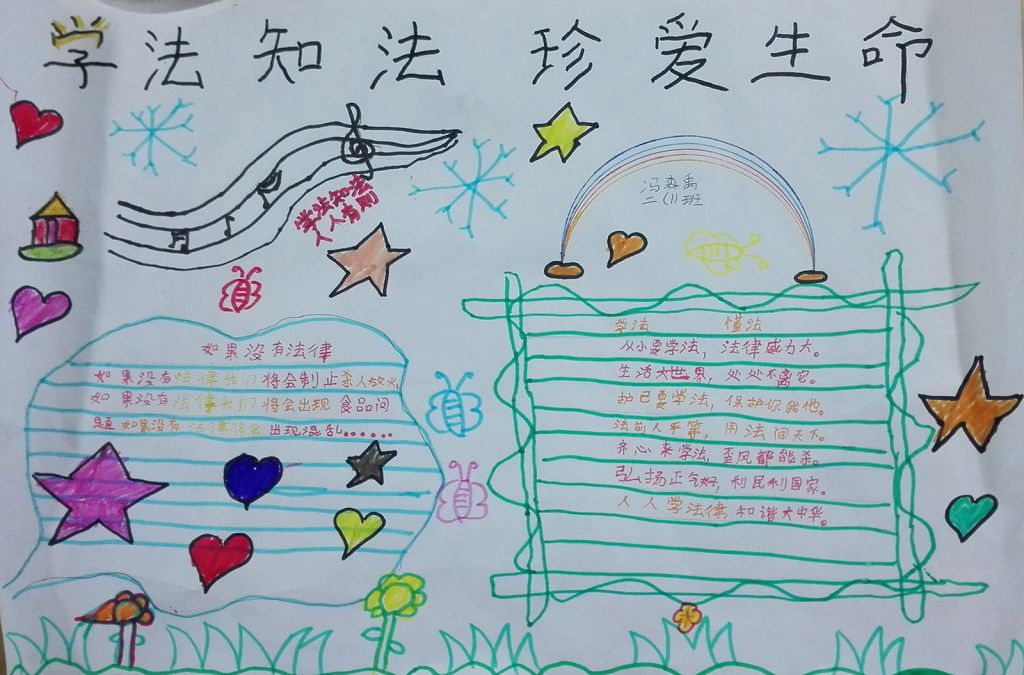 学法知法 珍爱生命
学法知法
人人有则
冯森禹
二(1)班
如果没有法律
如果没有法律我们将会制止杀人放火
如果没有法律我们将会出现食品问
题 如果没有法律将会出现混乱……
学法 懂法
从小要学法，法律威力大。
生活大世界，处处不离它。
护己要学法，保护你我他。
法前人平等，用法问天下。
齐心来学法，歪风都能杀。
弘扬正气好，利民利国家。
人人学法律，和谐大中华。